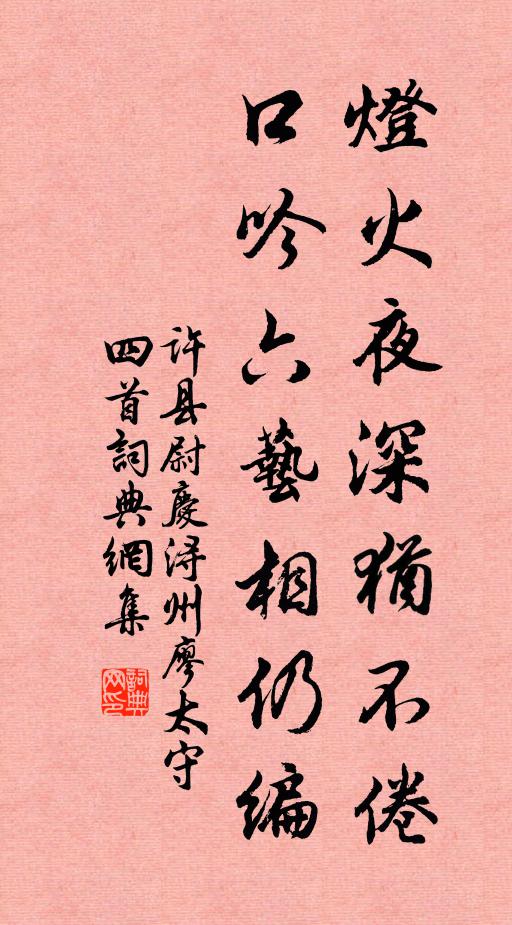 燈火夜深猶不倦
口吟六藝相仍編
许县尉慶潯州廖太守
四首詞典網集
詞典网印